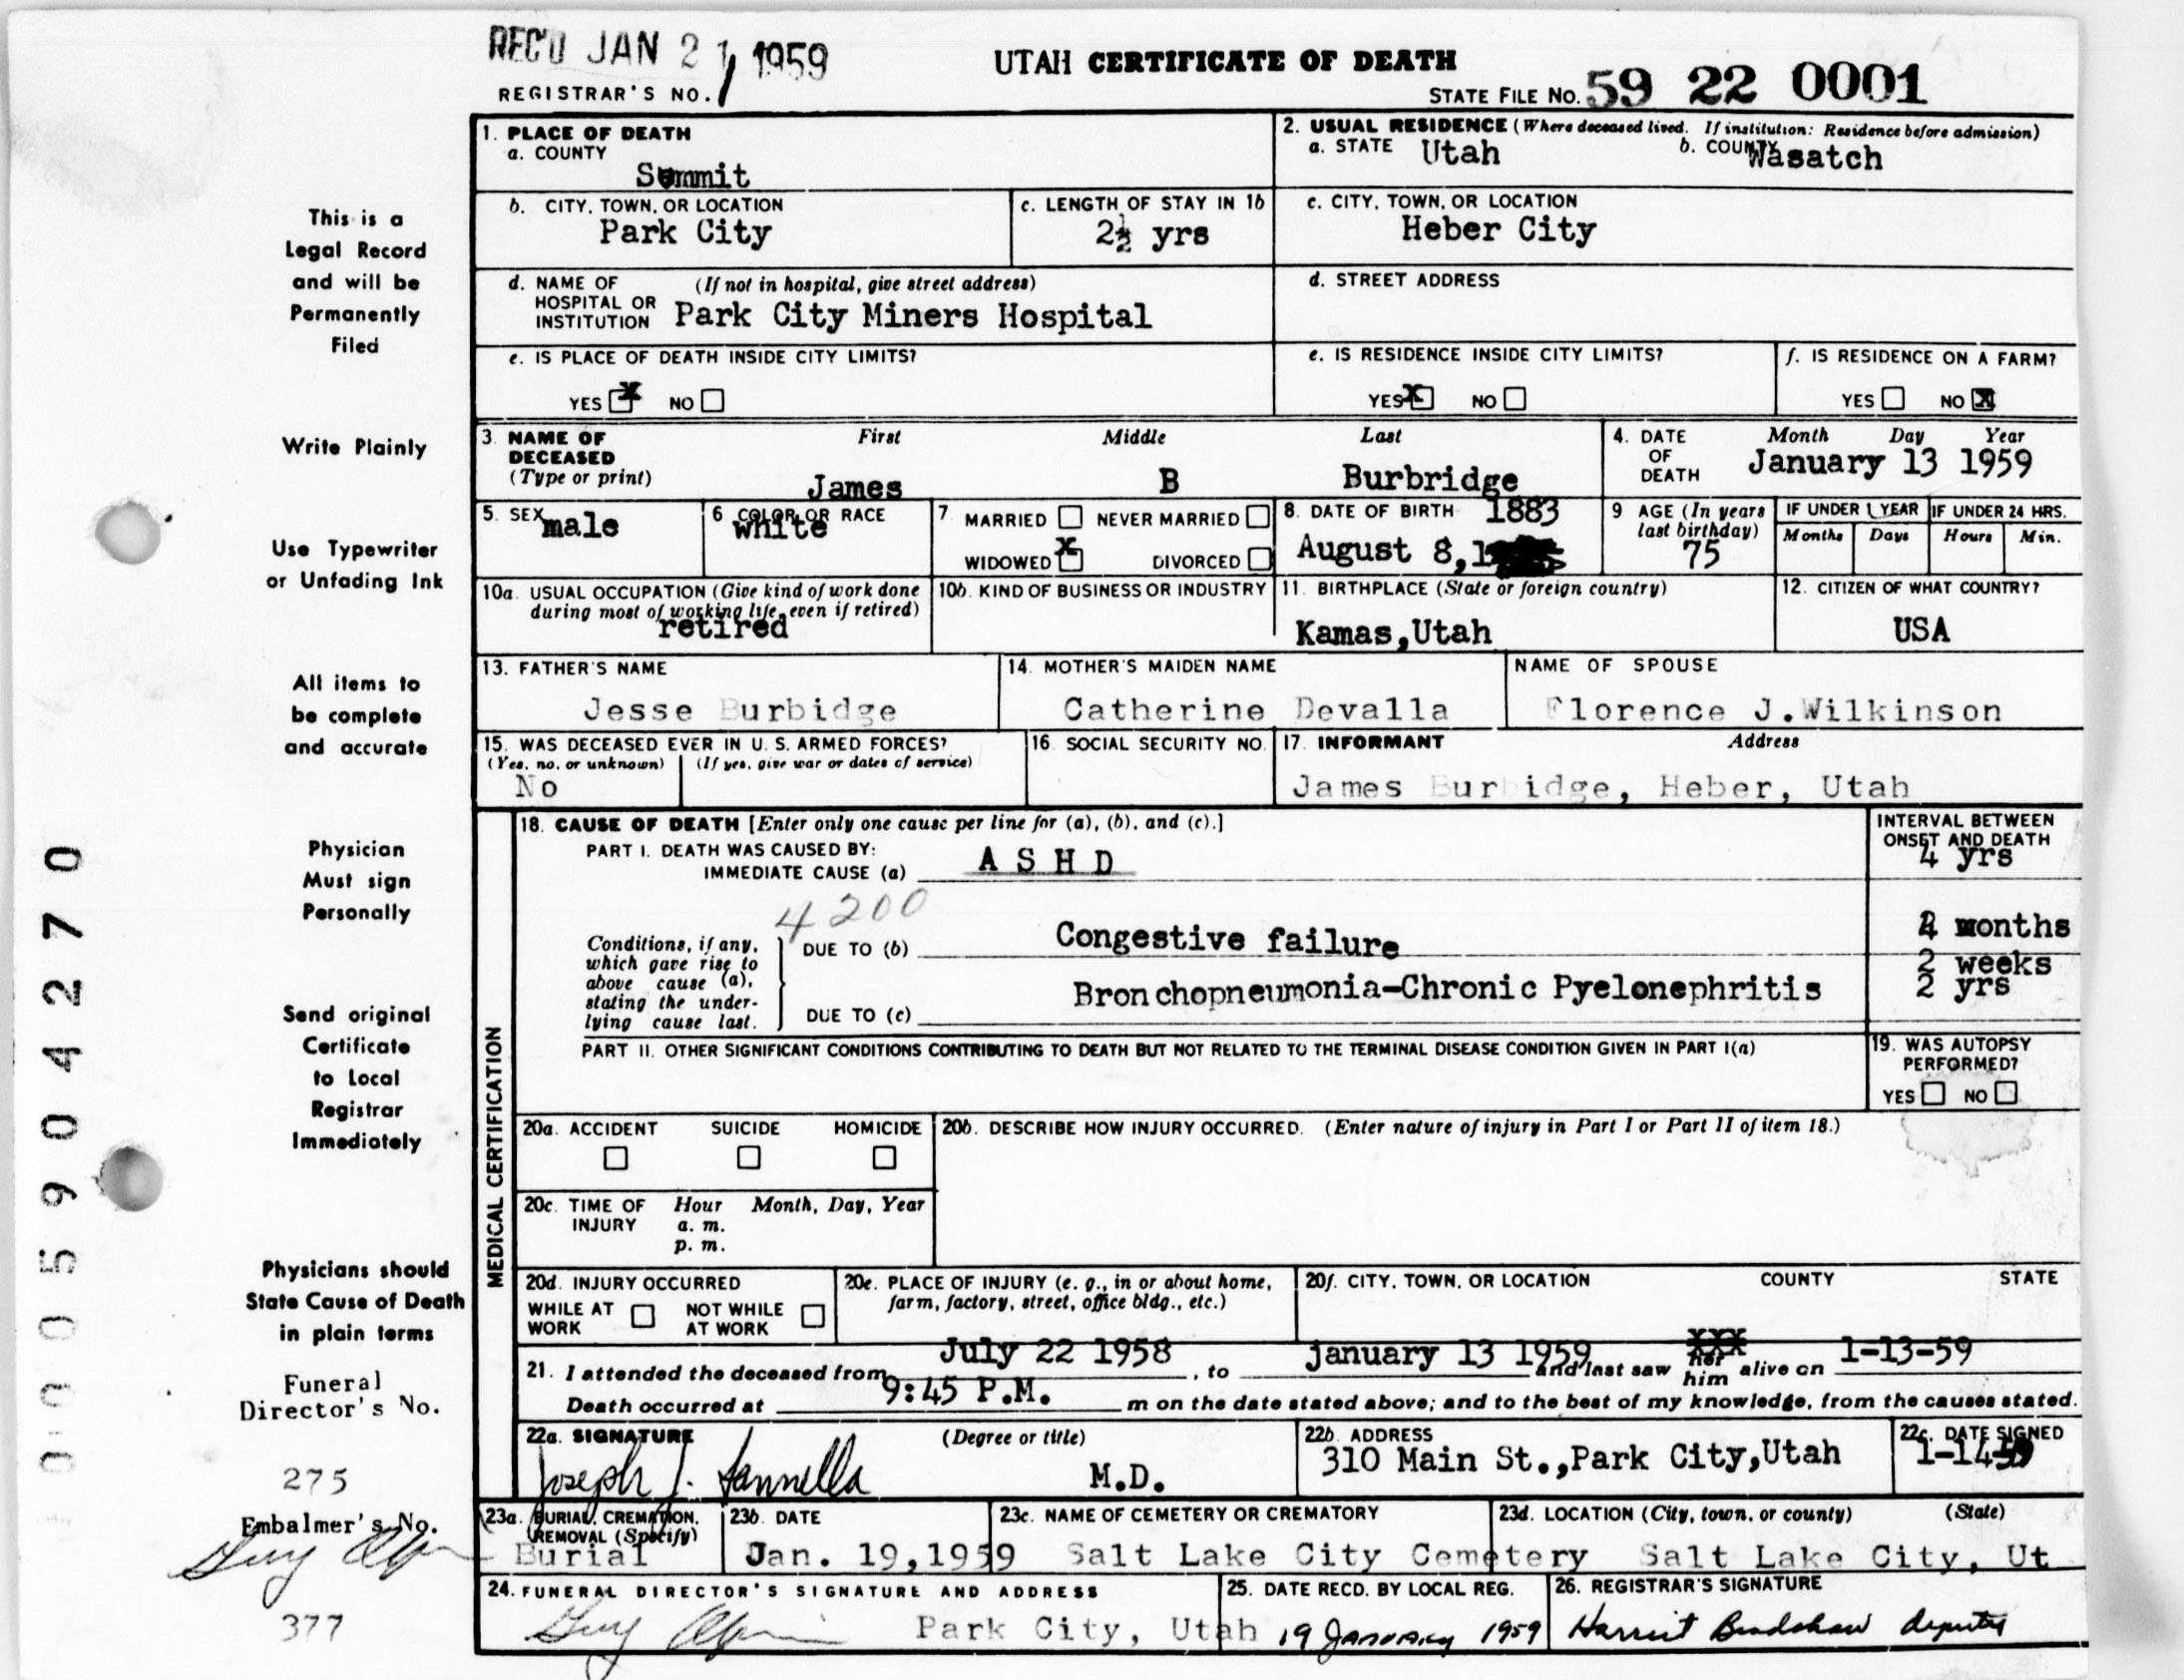 REC'D JAN 21 1959
UTAH CERTIFICATE OF DEATH
REGISTRAR'S NO. 1
STATE FILE NO. 59 22 0001
1. PLACE OF DEATH
a. COUNTY
Summit
2. USUAL RESIDENCE (Where deceased lived. If institution: Residence before admission)
a. STATE Utah b. COUNTY Wasatch
b. CITY, TOWN, OR LOCATION
Park City
c. LENGTH OF STAY IN 1b
2½ yrs
c. CITY, TOWN, OR LOCATION
Heber City
d. NAME OF HOSPITAL OR INSTITUTION (If not in hospital, give street address)
Park City Miners Hospital
d. STREET ADDRESS
e. IS PLACE OF DEATH INSIDE CITY LIMITS?
YES X NO
e. IS RESIDENCE INSIDE CITY LIMITS?
YES X NO
f. IS RESIDENCE ON A FARM?
YES NO X
3. NAME OF DECEASED (Type or print)
First Middle Last
James B Burbridge
4. DATE OF DEATH Month Day Year
January 13 1959
5. SEX male
6 COLOR OR RACE
white
7 MARRIED NEVER MARRIED
WIDOWED X DIVORCED
8. DATE OF BIRTH 1883
August 8,1
9 AGE (In years last birthday)
75
IF UNDER 1 YEAR IF UNDER 24 HRS.
Months Days Hours Min.
10a. USUAL OCCUPATION (Give kind of work done during most of working life, even if retired)
retired
10b. KIND OF BUSINESS OR INDUSTRY
11. BIRTHPLACE (State or foreign country)
Kamas,Utah
12. CITIZEN OF WHAT COUNTRY?
USA
13. FATHER'S NAME
Jesse Burbidge
14. MOTHER'S MAIDEN NAME
Catherine Devalla
NAME OF SPOUSE
Florence J.Wilkinson
15. WAS DECEASED EVER IN U. S. ARMED FORCES?
(Yes, no, or unknown) (If yes, give war or dates of service)
No
16. SOCIAL SECURITY NO.
17. INFORMANT Address
James Burbidge, Heber, Utah
MEDICAL CERTIFICATION
18. CAUSE OF DEATH [Enter only one cause per line for (a), (b), and (c).]
INTERVAL BETWEEN ONSET AND DEATH
PART I. DEATH WAS CAUSED BY:
IMMEDIATE CAUSE (a) A S H D
4 yrs
4200
Conditions, if any, which gave rise to above cause (a), stating the underlying cause last.
DUE TO (b) Congestive failure
months
2 weeks
DUE TO (c) Bronchopneumonia-Chronic Pyelonephritis
2 yrs
PART II. OTHER SIGNIFICANT CONDITIONS CONTRIBUTING TO DEATH BUT NOT RELATED TO THE TERMINAL DISEASE CONDITION GIVEN IN PART I(a)
19. WAS AUTOPSY PERFORMED?
YES NO
20a. ACCIDENT SUICIDE HOMICIDE
20b. DESCRIBE HOW INJURY OCCURRED. (Enter nature of injury in Part I or Part II of item 18.)
20c. TIME OF INJURY Hour Month, Day, Year
a. m.
p. m.
20d. INJURY OCCURRED
WHILE AT WORK NOT WHILE AT WORK
20e. PLACE OF INJURY (e. g., in or about home, farm, factory, street, office bldg., etc.)
20f. CITY, TOWN, OR LOCATION COUNTY STATE
21. I attended the deceased from July 22 1958, to january 13 1959 and last saw her him alive on 1-13-59
XXX
Death occurred at 9:45 P.M. m on the date stated above; and to the best of my knowledge, from the causes stated.
22a. SIGNATURE (Degree or title)
Joseph J. Iannella M.D.
22b. ADDRESS
310 Main St.,Park City,Utah
22c. DATE SIGNED
1-14-59
23a. BURIAL, CREMATION, REMOVAL (Specify)
Burial
23b. DATE
Jan. 19,1959
23c. NAME OF CEMETERY OR CREMATORY
Salt Lake City Cemetery
23d. LOCATION (City, town, or county) (State)
Salt Lake City, Ut
24. FUNERAL DIRECTOR'S SIGNATURE AND ADDRESS
Park City, Utah
25. DATE RECD. BY LOCAL REG.
19 January 1959
26. REGISTRAR'S SIGNATURE
Harriet Bradshaw deputy
This is a
Legal Record
and will be
Permanently
Filed
Write Plainly
Use Typewriter
or Unfading Ink
All items to
be complete
and accurate
Physician
Must sign
Personally
Send original
Certificate
to Local
Registrar
Immediately
Physicians should
State Cause of Death
in plain terms
Funeral
Director's No.
275
Embalmer's No.
377
005904270